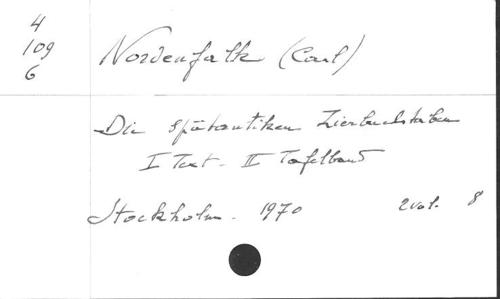 4
109
6
Nordenfalk (Carl)
Die spätantiken Zierbuchstaben
I Text - II Tafelband
Stockholm. 1970 2 vol. 8